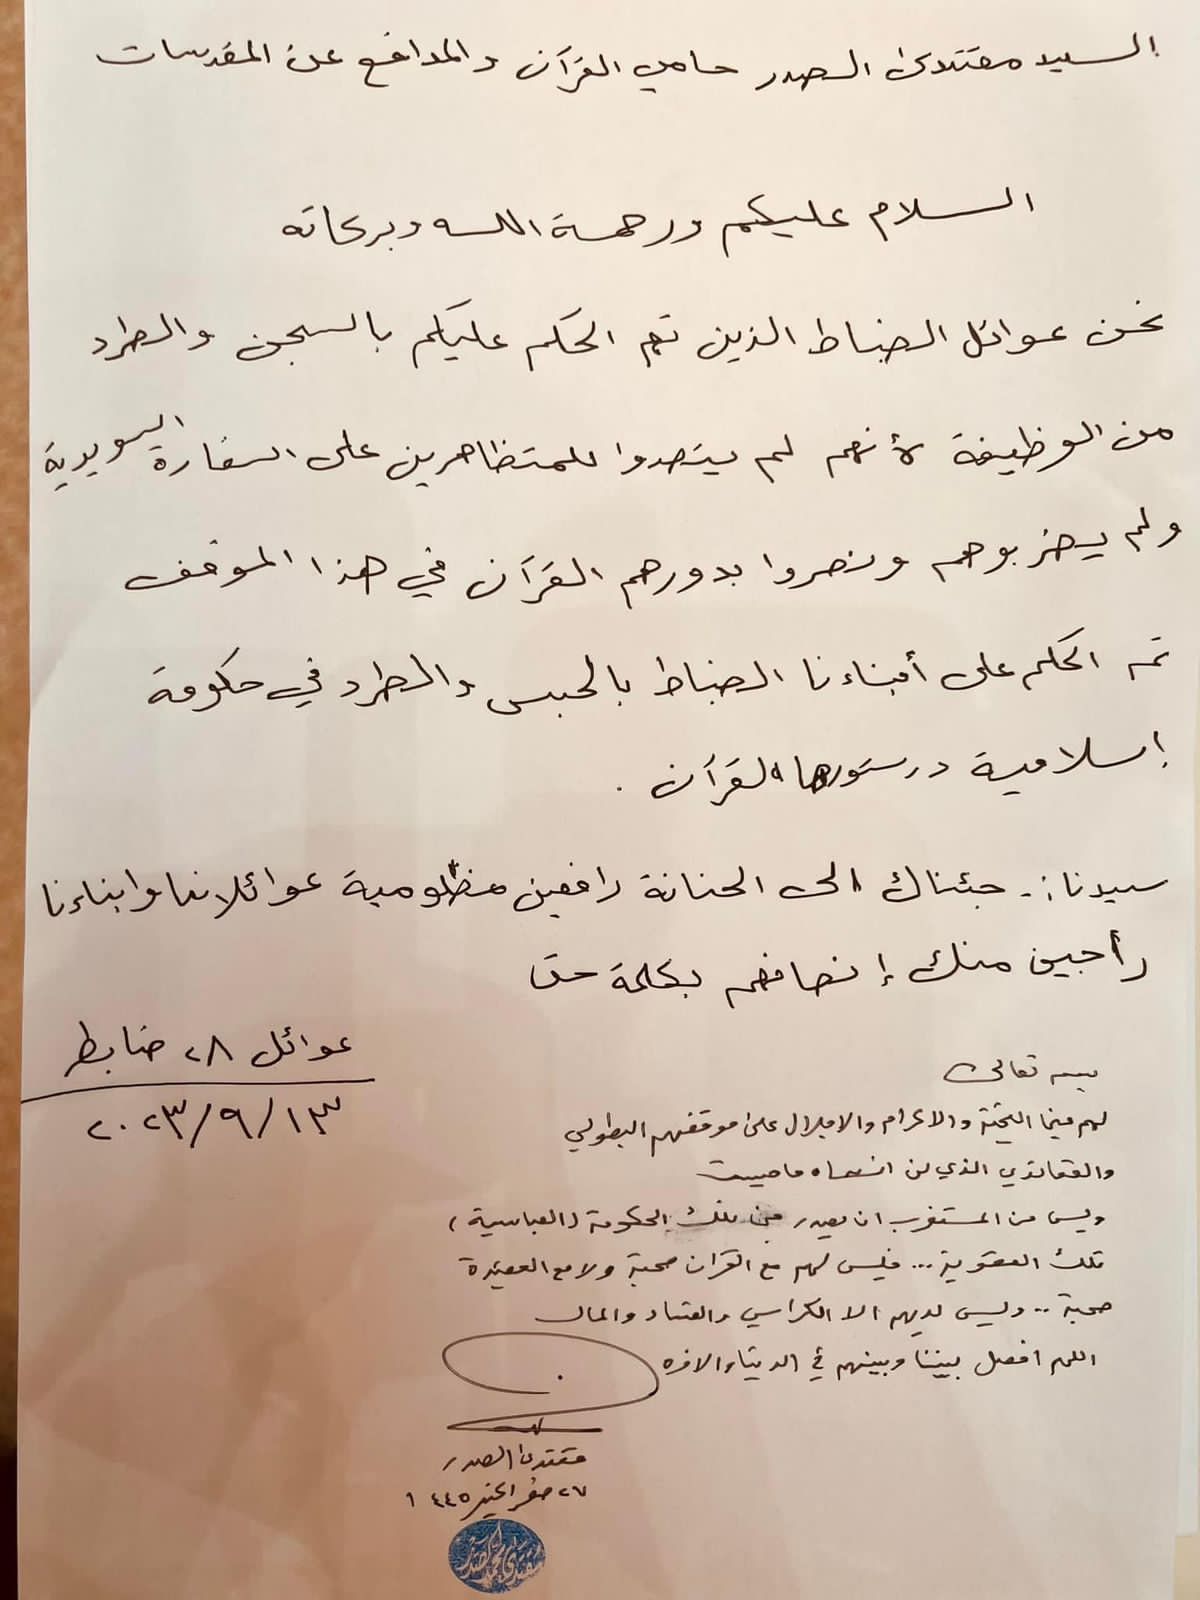 السيد مقتدى الصدر حامي القرآن والمدافع عن المقدسات
السلام عليكم ورحمة الله وبركاته
نحن عوائل الضباط الذين تم الحكم عليكم بالسجن والطرد
من الوظيفة لأنهم لم يتصدوا للمتظاهرين على السفارة السويدية
ولم يضربوهم ونصروا بدورهم القرآن في هذا الموقف
تم الحكم على أبناءنا الضباط بالحبس والطرد في حكومة
إسلامية دستورها القرآن .
سيدنا :- جئناك الى الحنانة رافعين مظلومية عوائلنا وابناءنا
راجين منك إنصافهم بكلمة حق
عوائل ٢٨ ضابط
٢٠٢٣/٩/١٣
بسمه تعالى
لهم منا التحية والاكرام والاجلال على موقفهم البطولي
والعقائدي الذي لن انساه ما حييت
وليس من المستغرب ان يصدر من تلك الحكومة (العباسية)
تلك العقوبة ... فليس لهم مع القران صحبة ولا مع العقيدة
صحبة .. وليس لديهم الا الكراسي والفساد والمال
اللهم افصل بيننا وبينهم في الدنيا والاخرة
مقتدى الصدر
٢٧ صفر الخير ١٤٤٥
مقتدى محمد الصدر